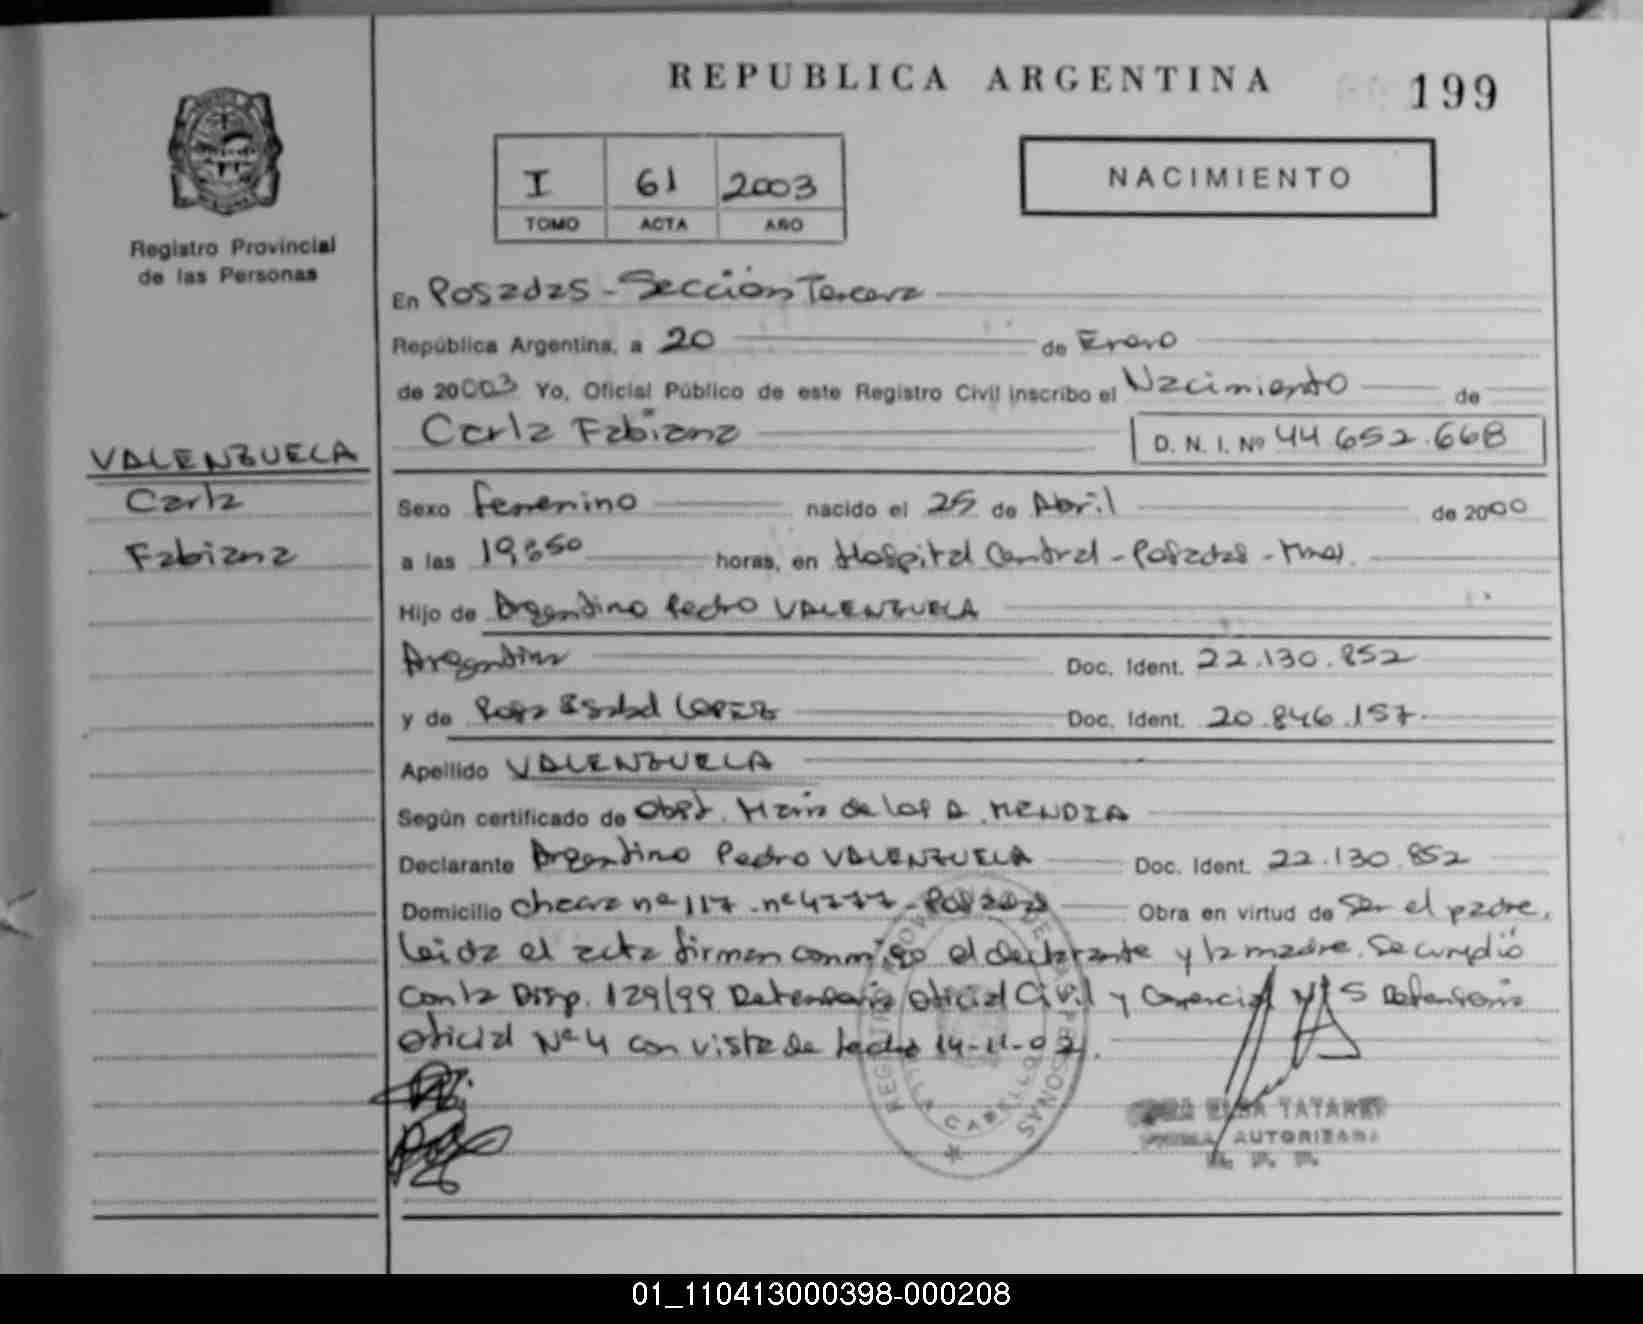 REPUBLICA ARGENTINA
199
I 61 2003
TOMO ACTA AÑO
NACIMIENTO
Registro Provincial
de las Personas
En Posadas - Sección Tercera
República Argentina, a 20 de Enero
de 20003 Yo, Oficial Público de este Registro Civil inscribo el Nacimiento de
Carla Fabiana D. N. I. Nº 44.652.668
VALENZUELA
Carla
Fabiana
Sexo femenino nacido el 25 de Abril de 2000
a las 19:50 horas, en Hospital Central - Posadas - Mnes.
Hijo de Argentino Pedro VALENZUELA
Argentina Doc. Ident. 22.130.852
y de Rosa Isabel LOPEZ Doc. Ident. 20.846.157
Apellido VALENZUELA
Según certificado de Obst. María de los A. MENDIA
Declarante Argentino Pedro VALENZUELA Doc. Ident. 22.130.852
Domicilio chacra nº 117 - nº 4777 - Posadas Obra en virtud de ser el padre,
leida el acta firman conmigo el declarante y la madre. Se cumplió
con la Disp. 129/99 Defensoria Oficial Civil y Comercial Nº 5 Defensoria
Oficial Nº 4 con vista de fecha 14-11-02.
REGISTRO PROV. DE LAS PERSONAS
VILLA CABELLO
ELSA TATAREN
FIRMA AUTORIZADA
R. P. P.
01_110413000398-000208